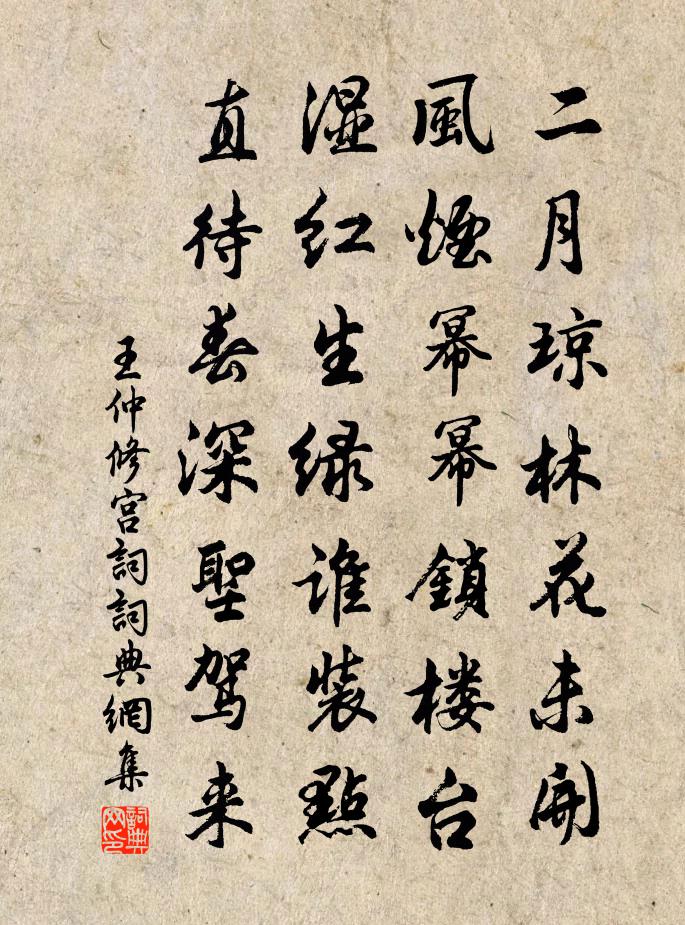 二月琼林花未開
風煙幂幂鎖楼台
湿红生绿谁装點
直待春深聖驾来
王仲修宫詞詞典網集
詞典网印